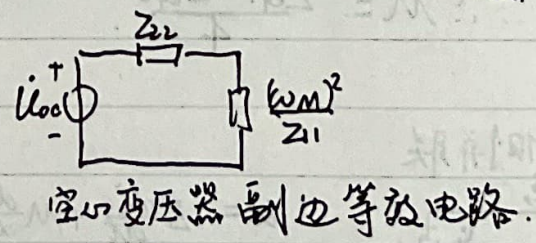 Z22
+
U̇oc
-
(ωM)²
Z11
空心变压器副边等效电路.